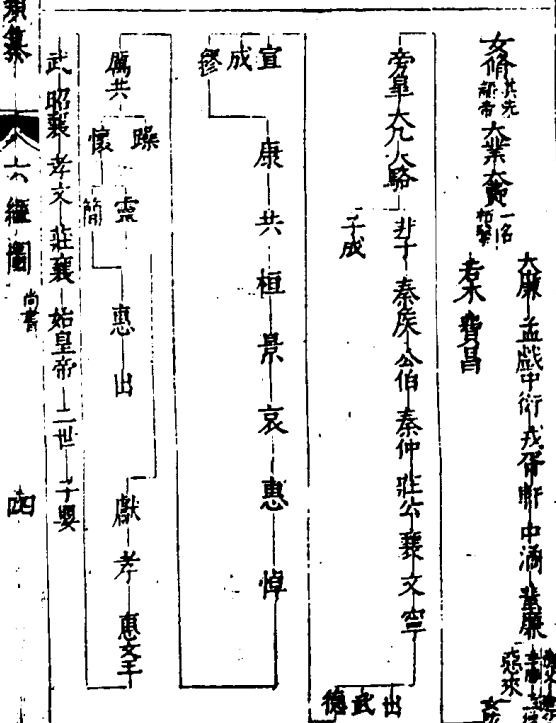 女脩 其先 大業 大費 一名
大廉 孟戲 中衍 戎胥軒 中潏 蜚廉
惡來
若木 費昌
旁皐 太几 大駱 非子 秦侯 公伯 秦仲 莊公 襄 文 寧
子成
出
武
德
宣
成
繆 康 共 桓 景 哀 惠 悼
厲共
躁
懷 靈
簡 惠 出
獻 孝 惠文王
武 昭襄 孝文 莊襄 始皇帝 二世 子嬰
六經圖 尚書 四